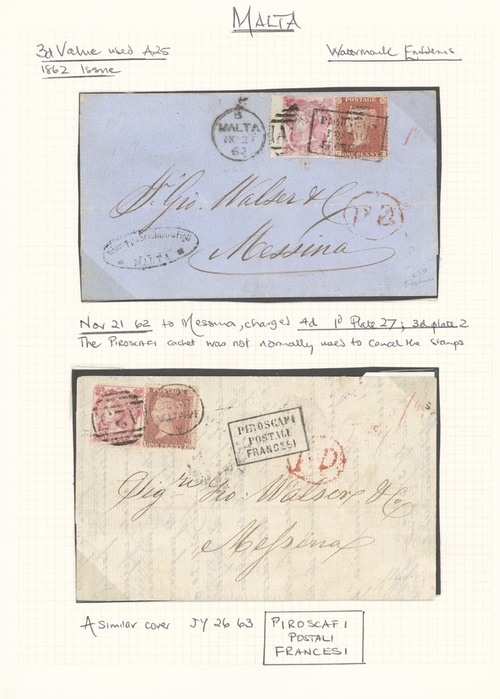 MALTA
3d Value used A25
Watermark Emblems
1862 Issue
B
MALTA
62
POSTAGE
ONE PENNY
A
Gio. Walser & Co
P.D.
Messina
MALTA
Nov 21 62 to Messina, charged 4d 1d Plate 27; 3d plate 2
The PIROSCAFI cachet was not normally used to cancel the stamps
PIROSCAFI
POSTALI
FRANCESI
P.D.
Gio. Walser & Co
Messina
A similar cover JY 26 63
PIROSCAFI
POSTALI
FRANCESI